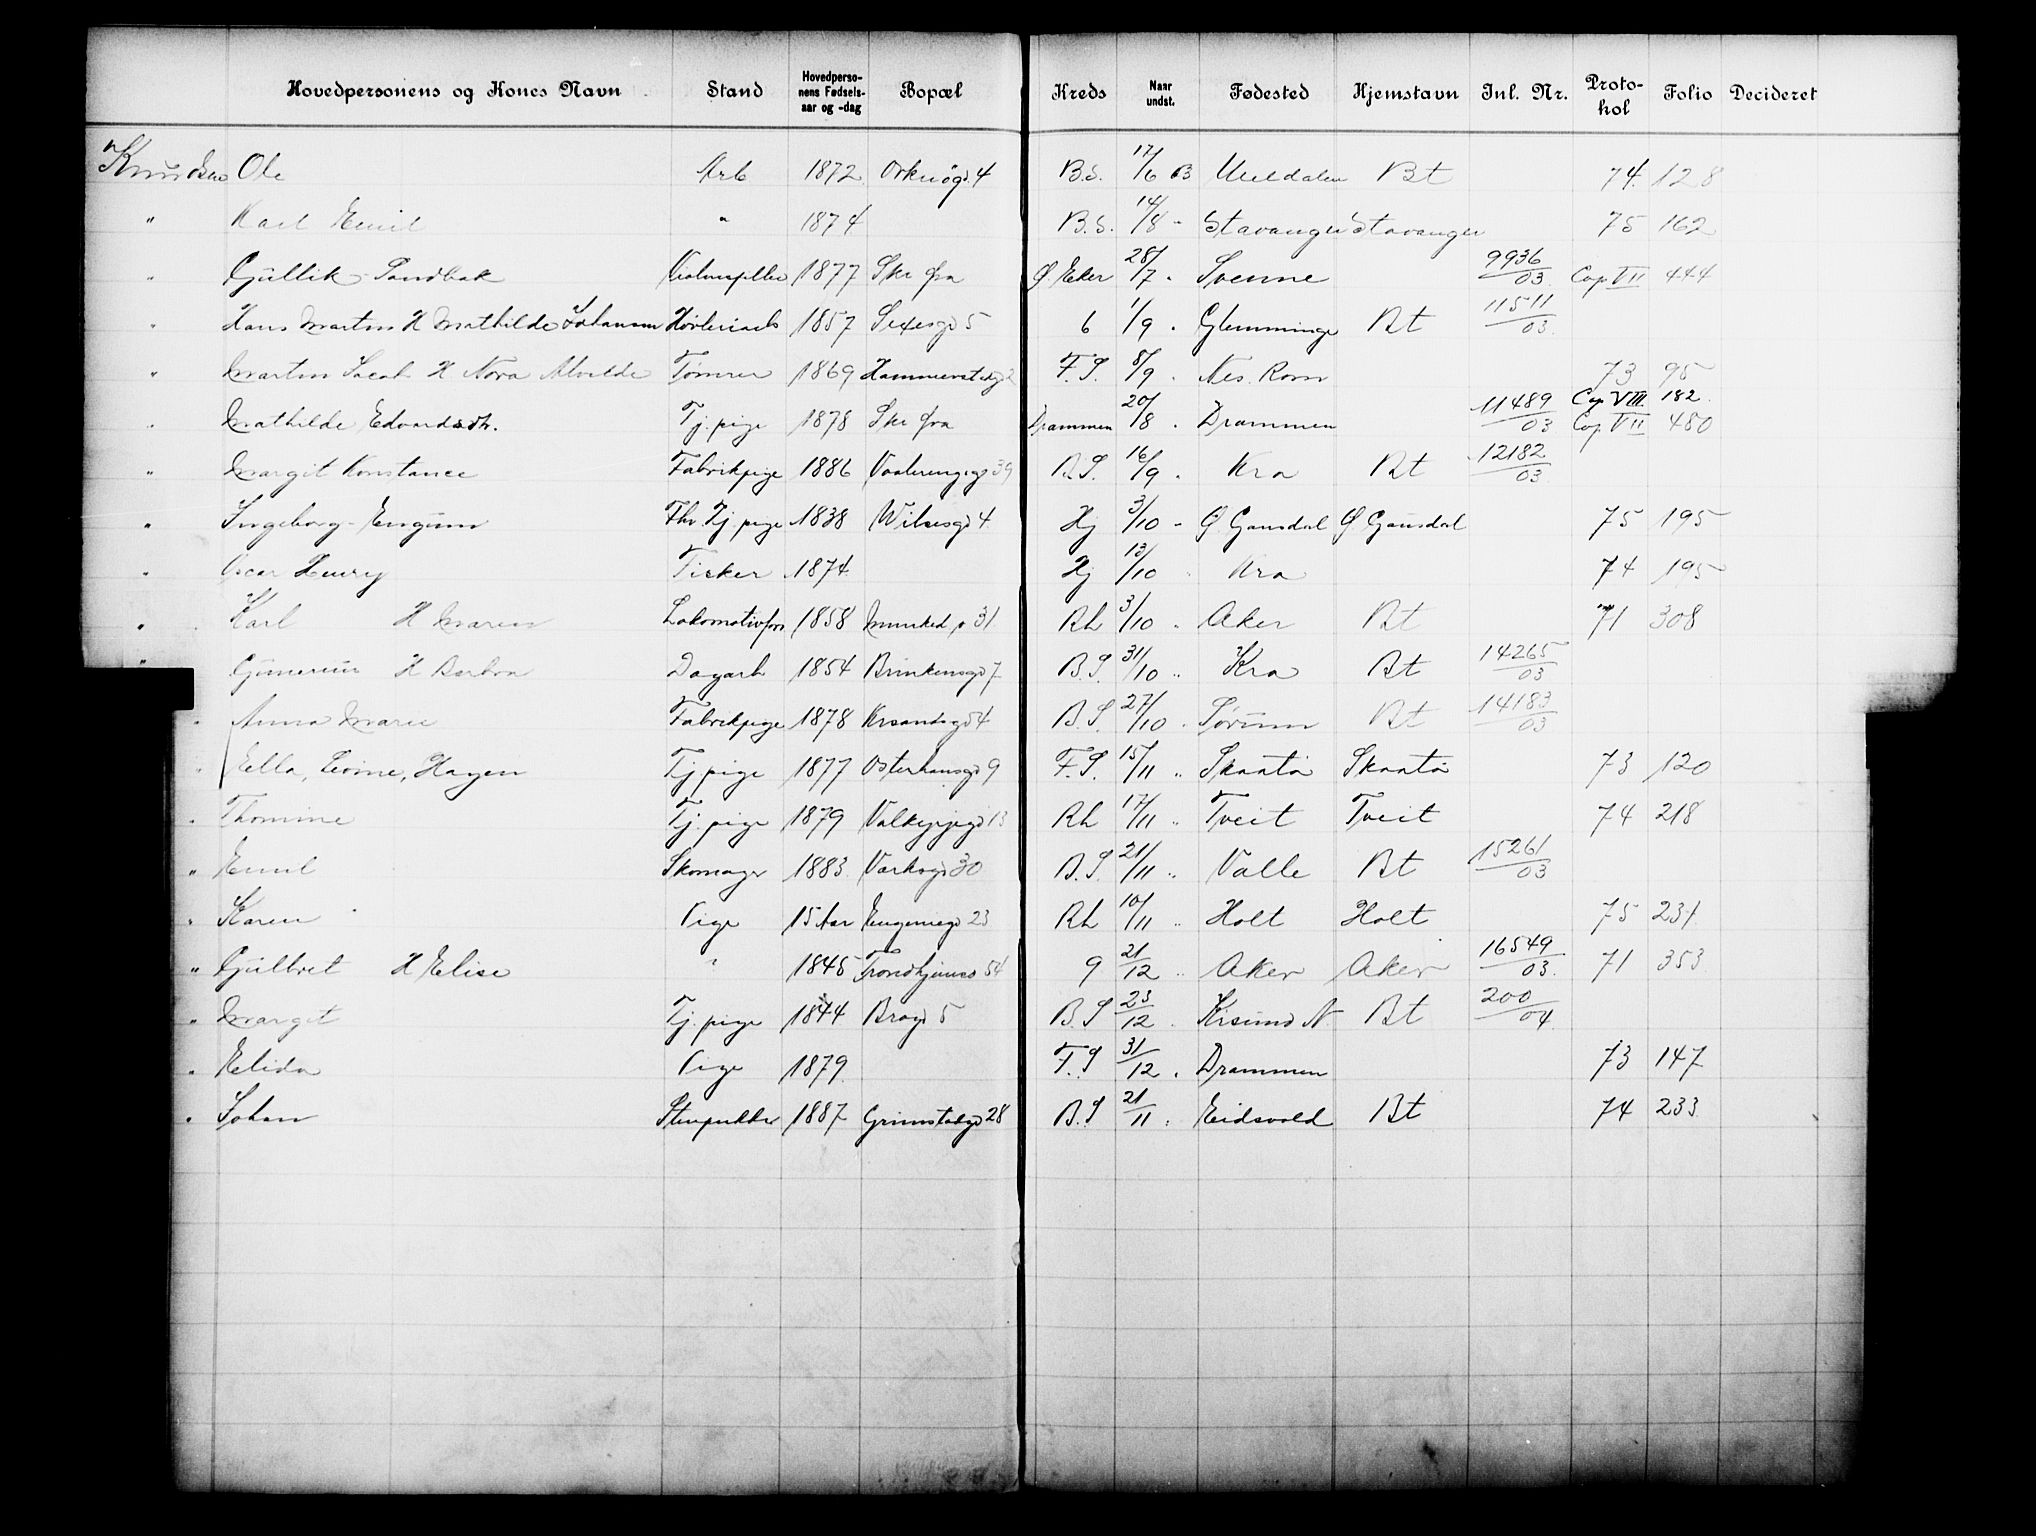 Hovedpersonens og Kones Navn Stand Hovedpersonens Fødselsaar og -dag Bopæl Kreds Naar undst. Fødested Hjemstavn Inl. Nr. Protokol Folio Decideret
Knudsen Ole Arb 1872 Orknøgd 4 B.S. 17/6 03 Bt 74 128
" Karl Emil " 1874 B.S. 14/8 " Stavanger Stavanger 75 162
" Gullik Sandbak 1877 Skr fra Ø Eker 28/7 " Svenne 9936/03 Cop VII 444
" Hans Martin H Mathilde Johansen 1857 Sexesgd 5 6 1/9 " Glemminge Bt 11511/03
" Martin Jacob H Nora Alvilde Tømrer 1869 F.S. 8/9 " Nes. Rom 73 95
" Mathilde Edvardsdtr. Tj. pige 1878 Skr fra Drammen 20/8 " Drammen 11489/03 Cop VIII 182 Cop VII 480
" Margit Konstance Fabrikpige 1886 Vaalerenggd 39 B.S. 16/9 " Kra Bt 12182/03
" Ingeborg Engum Fhv. Tj. pige 1838 Wilsesgd 4 Hj 3/10 " Ø. Gausdal Ø. Gausdal 75 195
" Oscar Henry Tisker 1874 Hj 13/10 " Kra 74 195
" Karl H Maren Lokomotivfyrb 1858 Munked v 31 Rh 3/10 " Aker Bt 71 308
" Gunerius H Barbra Dagarb 1854 Brinkensgd 7 B.S. 31/10 " Kra Bt 14265/03
" Anna Marie Fabrikpige 1878 Krsandsgd 4 B.S. 27/10 " Sørum Bt 14183/03
" Ella, Levine, Hagen Tj. pige 1877 Osterhausgd 9 F.S. 15/11 " Skaatø Skaatø 73 120
" Thomine Tj. pige 1879 Valkyrjegd 13 Rh 17/11 " Tveit Tveit 74 218
" Emil Skomager 1883 Værksgd 30 B.S. 21/11 " Valle Bt 15261/03
" Karen Pige 15 Aar Eugeniegd 23 Rh 10/11 " Holt Holt 75 231
" Gulbret H Elise " 1845 Trondhjemsv 54 9 21/12 " Aker Aker 16549/03 71 353
" Margit Tj. pige 1844 Brogd 5 B.S 23/12 " Krsund N Bt 200/04
" Elida Pige 1879 F.S 31/12 " Drammen 73 147
" Johan Stenpukker 1887 Grimstadgd 28 B.S 21/11 " Eidsvold Bt 74 233